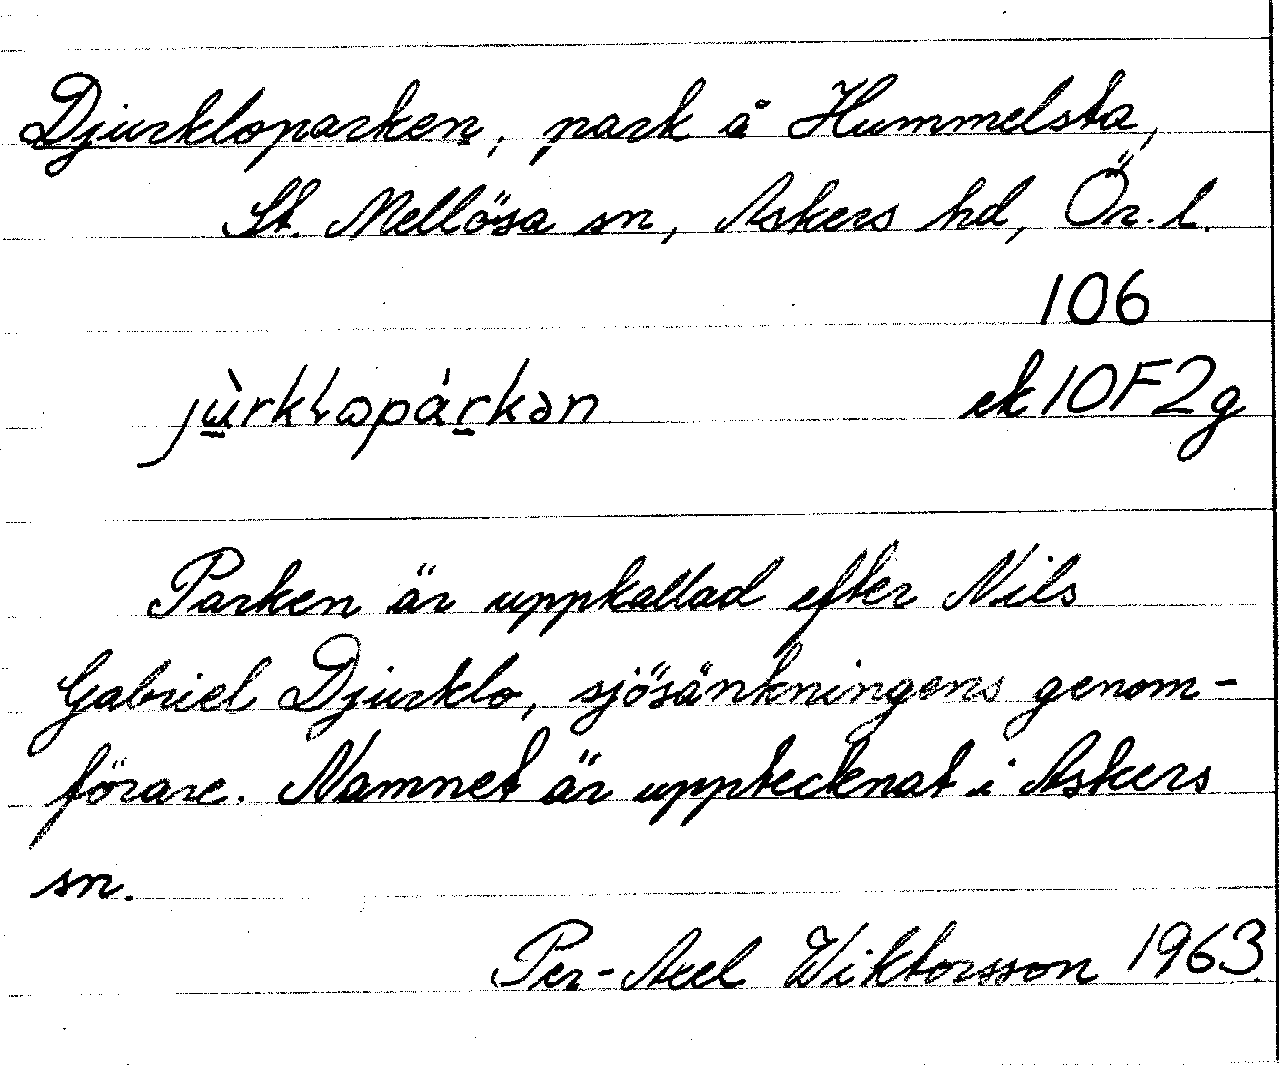 Djurkloparken, park å Hummelsta,
St. Mellösa sn, Askers hd, Ör. l.
106
jùrklopárkən ek 10F2g
Parken är uppkallad efter Nils
Gabriel Djurklo, sjösänkningens genom-
förare. Namnet är upptecknat i Askers
sn.
Per-Axel Wiktorsson 1963